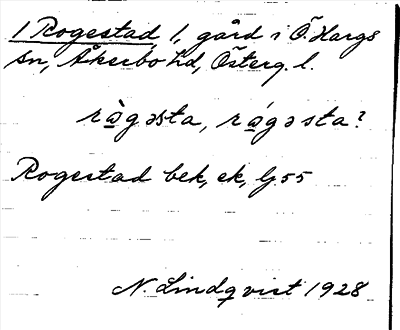 1 Rogestad 1, gård i Ö. Hargs
sn, Åkerbo hd, Österg. l.
rò̲gəsta, ró̲gəsta?
Rogestad bek, ek, lj 55
N. Lindqvist 1928